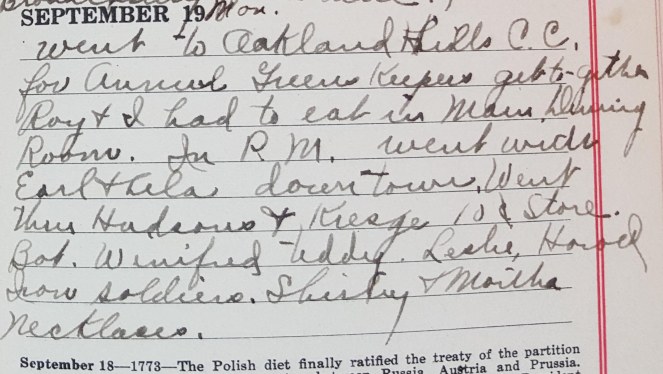 SEPTEMBER 19 Mon.
went to Oakland Hills C.C.
for Annual Green Keepers get-to-gether
Roy & I had to eat in Main Dining
Room. In P.M. went with
Earl & Lela downtown, Went
thru Hudsons & Kresge 10¢ Store.
Got. Winifred teddy. Leslie, Harold
iron soldiers. Shirley & Martha
necklaces.
September 18—1773—The Polish diet finally ratified the treaty of the partition
Russia, Austria and Prussia.